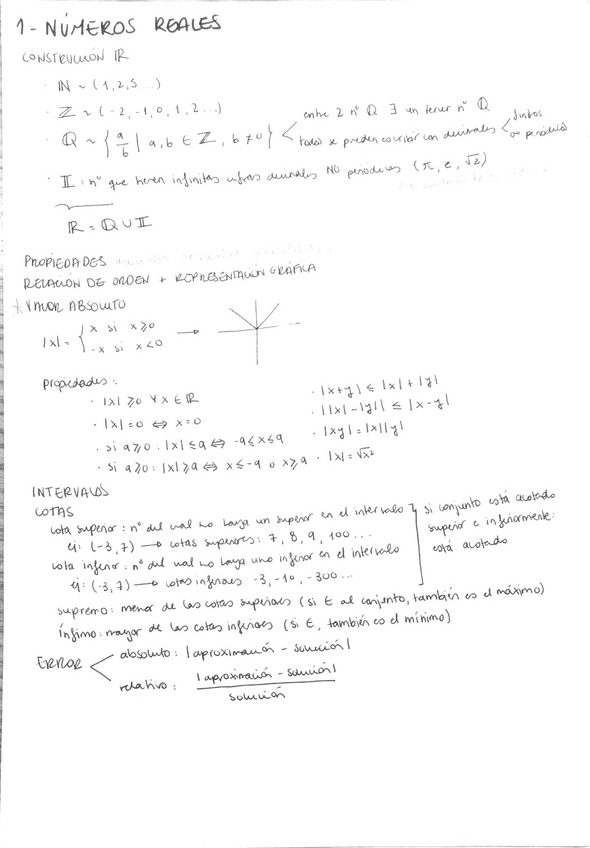 1 - NÚMEROS REALES
CONSTRUCCIÓN ℝ
· ℕ ~ (1, 2, 3 ...)
· ℤ ~ (-2, -1, 0, 1, 2 ...)
· ℚ ~ { a/b | a, b ∈ ℤ, b ≠ 0 } < entre 2 nº ℚ ∃ un tercer nº ℚ
todos se pueden escribir con decimales < finitos
o periódicos
· 𝕀 : nº que tienen infinitas cifras decimales NO periódicas (π, e, √2)
ℝ = ℚ ∪ 𝕀
PROPIEDADES
RELACIÓN DE ORDEN + REPRESENTACIÓN GRÁFICA
* VALOR ABSOLUTO
|x| = { x si x ≥ 0
-x si x < 0 →
propiedades:
· |x| ≥ 0 ∀ x ∈ ℝ
· |x| = 0 ⇔ x = 0
· si a ≥ 0 : |x| ≤ a ⇔ -a ≤ x ≤ a
· si a ≥ 0 : |x| ≥ a ⇔ x ≤ -a o x ≥ a
· |x+y| ≤ |x| + |y|
· ||x| - |y|| ≤ |x - y|
· |xy| = |x||y|
· |x| = √x²
INTERVALOS
COTAS
cota superior : nº del cual no haya un superior en el intervalo
ej: (-3, 7) → cotas superiores: 7, 8, 9, 100 ...
cota inferior : nº del cual no haya uno inferior en el intervalo
ej: (-3, 7) → cotas inferiores: -3, -10, -300 ...
si conjunto está acotado
superior e inferiormente:
está acotado
supremo: menor de las cotas superiores (si ∈ al conjunto, también es el máximo)
ínfimo: mayor de las cotas inferiores (si ∈, también es el mínimo)
ERROR < absoluto: |aproximación - solución|
relativo: |aproximación - solución|
solución